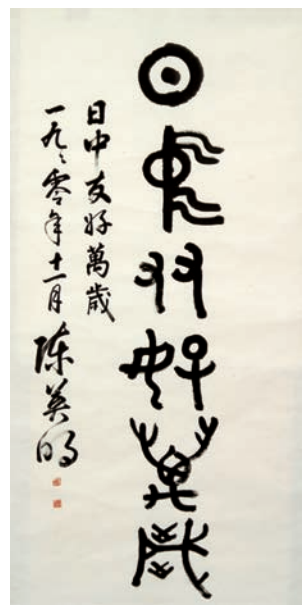 日中友好萬歲
日中友好萬歲
一九九零年十一月
陈英明